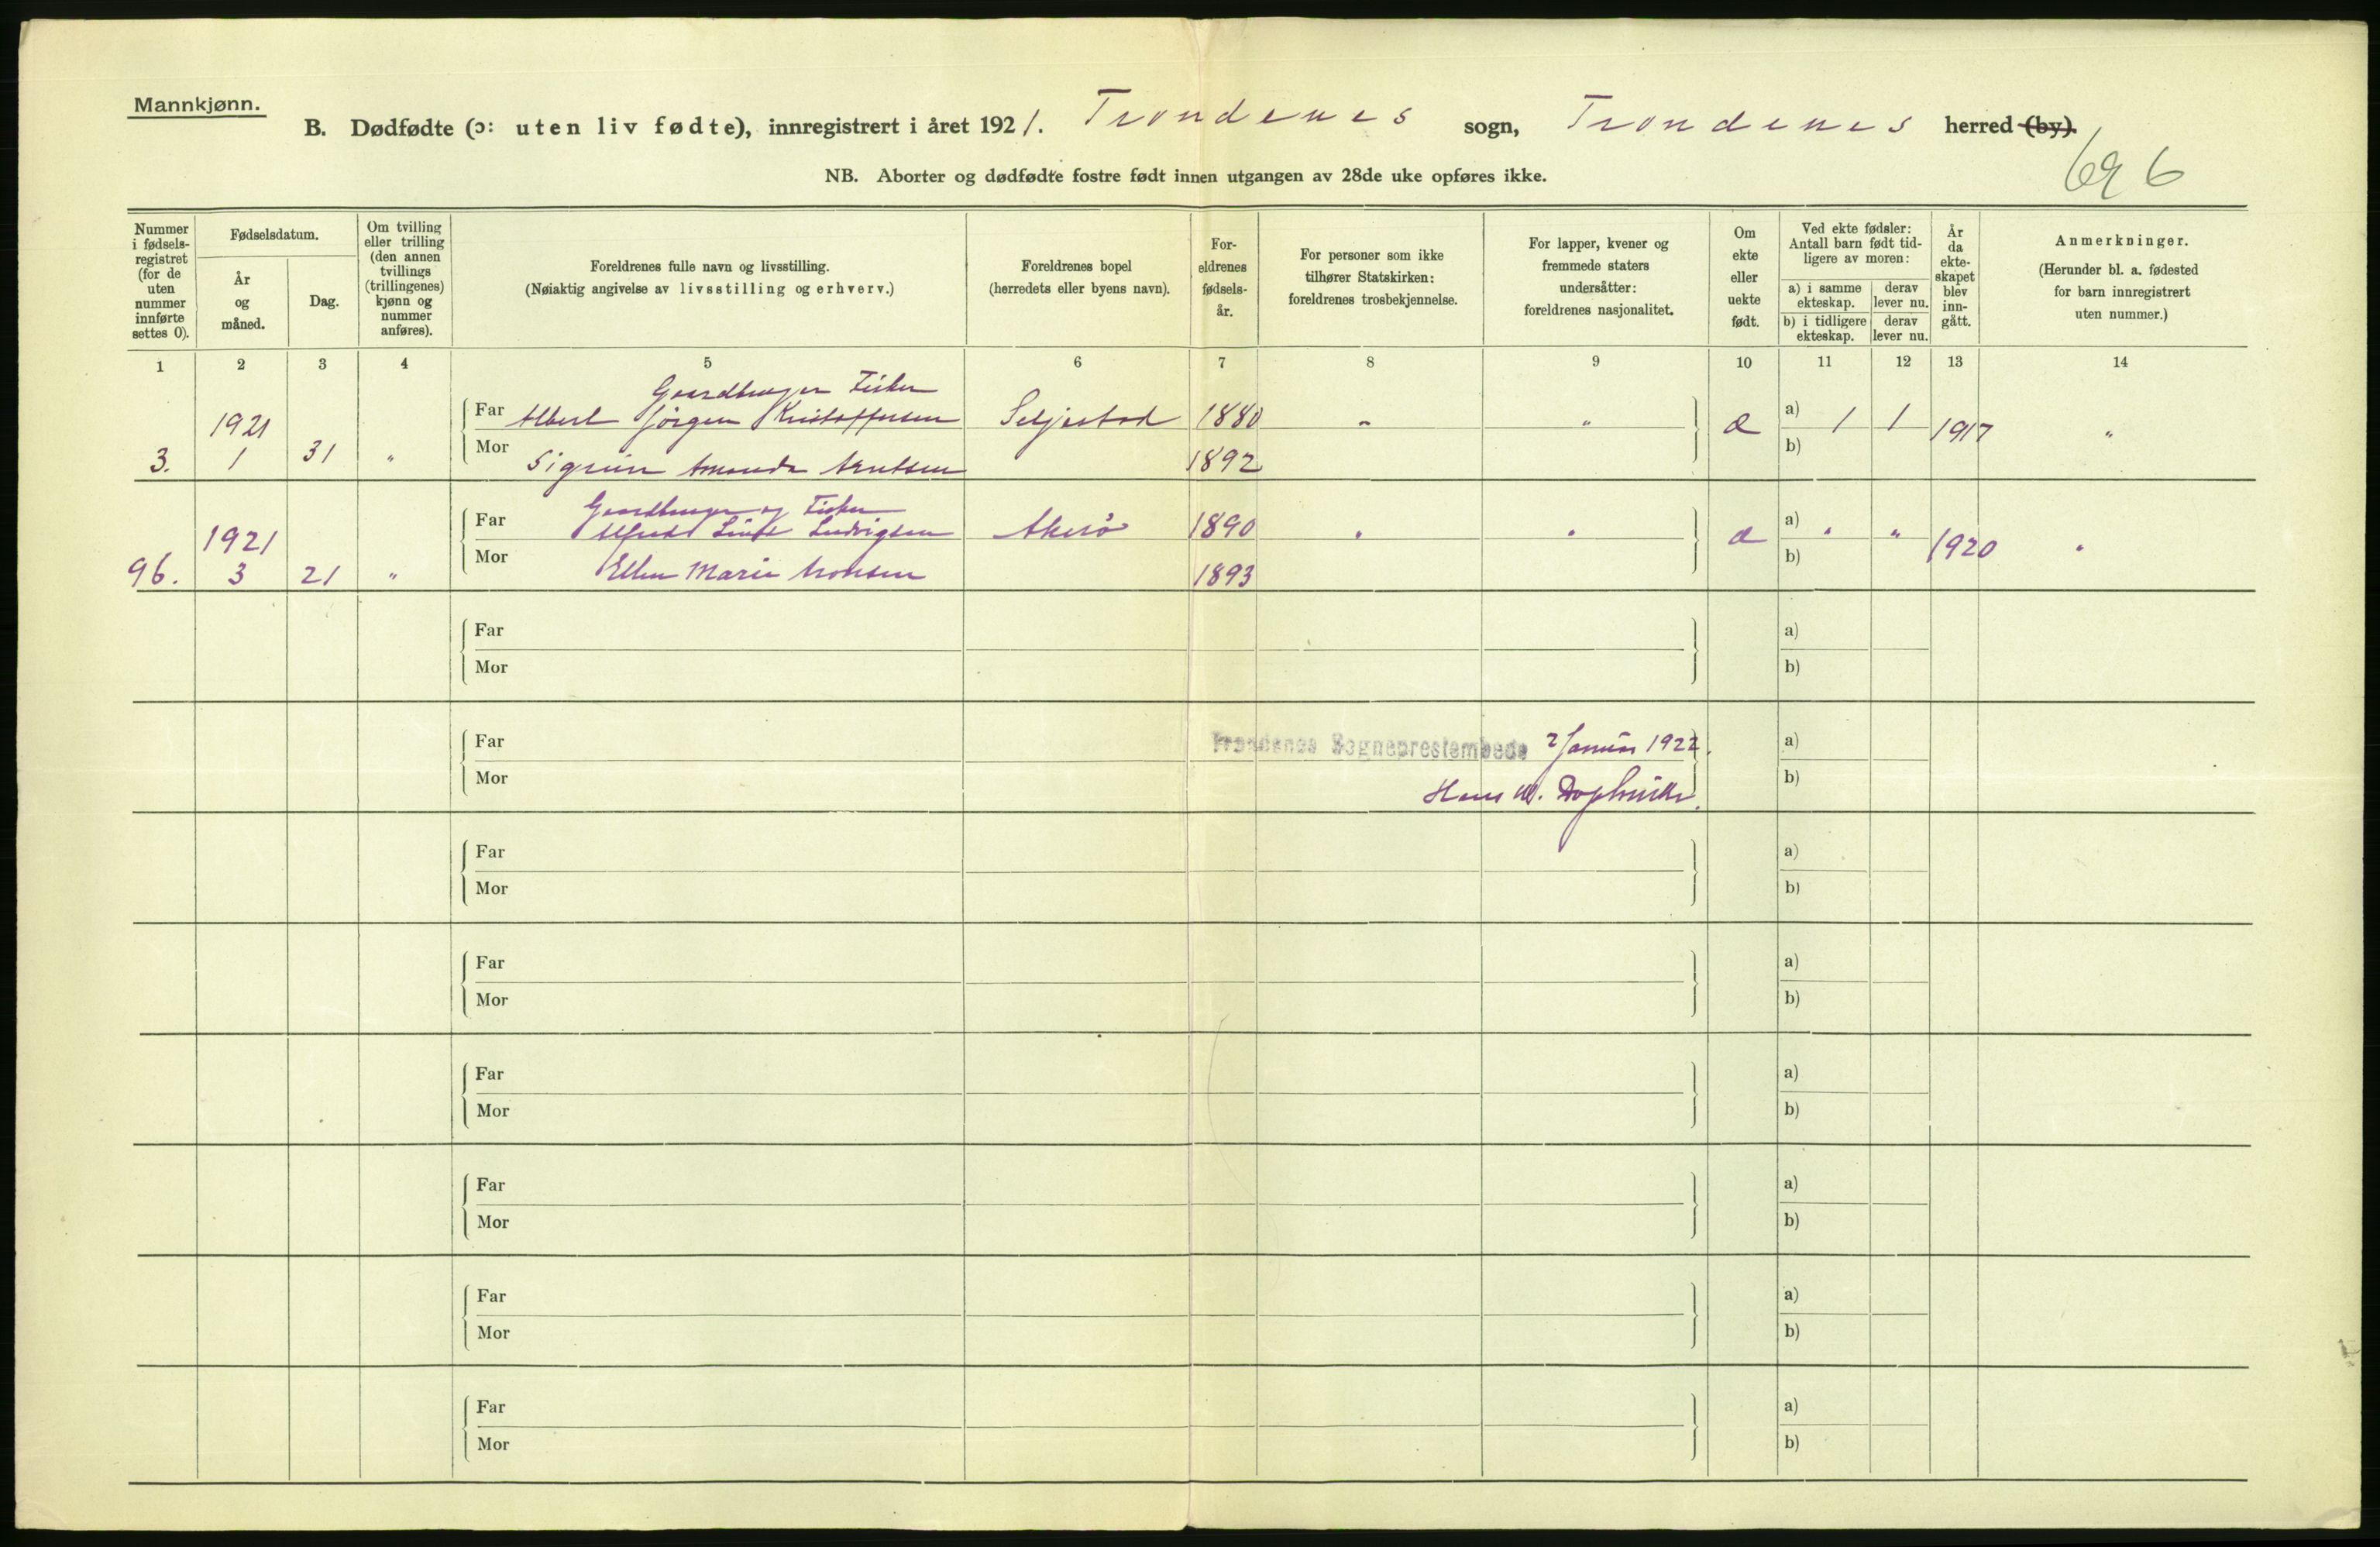 Mannkjønn.
B. Dødfødte (ɔ: uten liv fødte), innregistrert i året 1921. Trondenes sogn, Trondenes herred (by).
NB. Aborter og dødfødte fostre født innen utgangen av 28de uke opføres ikke.
6
Nummer i fødsels-registret (for de uten nummer innførte settes 0).
Fødselsdatum.
År og måned.
Dag.
Om tvilling eller trilling (den annen tvillings (trillingenes) kjønn og nummer anføres).
Foreldrenes fulle navn og livsstilling.
(Nøiaktig angivelse av livsstilling og erhverv.)
Foreldrenes bopel
(herredets eller byens navn).
For-eldrenes fødsels-år.
For personer som ikke tilhører Statskirken: foreldrenes trosbekjennelse.
For lapper, kvener og fremmede staters undersåtter: foreldrenes nasjonalitet.
Om ekte eller uekte født.
Ved ekte fødsler: Antall barn født tid-ligere av moren:
a) i samme ekteskap.
derav lever nu.
b) i tidligere ekteskap.
derav lever nu.
År da ekte-skapet blev inn-gått.
Anmerkninger.
(Herunder bl. a. fødested for barn innregistrert uten nummer.)
1 2 3 4 5 6 7 8 9 10 11 12 13 14
Gaardbruger Fisker
Far Albert Jörgen Kristoffersen Seljestad 1880 " " a) 1 1 1917 "
3. 1921 1 31 "
Mor Amanda 1892 b)
Gaardbruger og Fisker
Far Alfred Ludvigsen Akerö 1890 " " a) " " 1920 "
96. 1921 3 21 "
Mor Ellen Marie 1893 b)
Far a)
Mor b)
Far Trondenes Sogneprestembede 2 Januar 1922. a)
Mor Hans b)
Far a)
Mor b)
Far a)
Mor b)
Far a)
Mor b)
Far a)
Mor b)
Far a)
Mor b)
Far a)
Mor b)